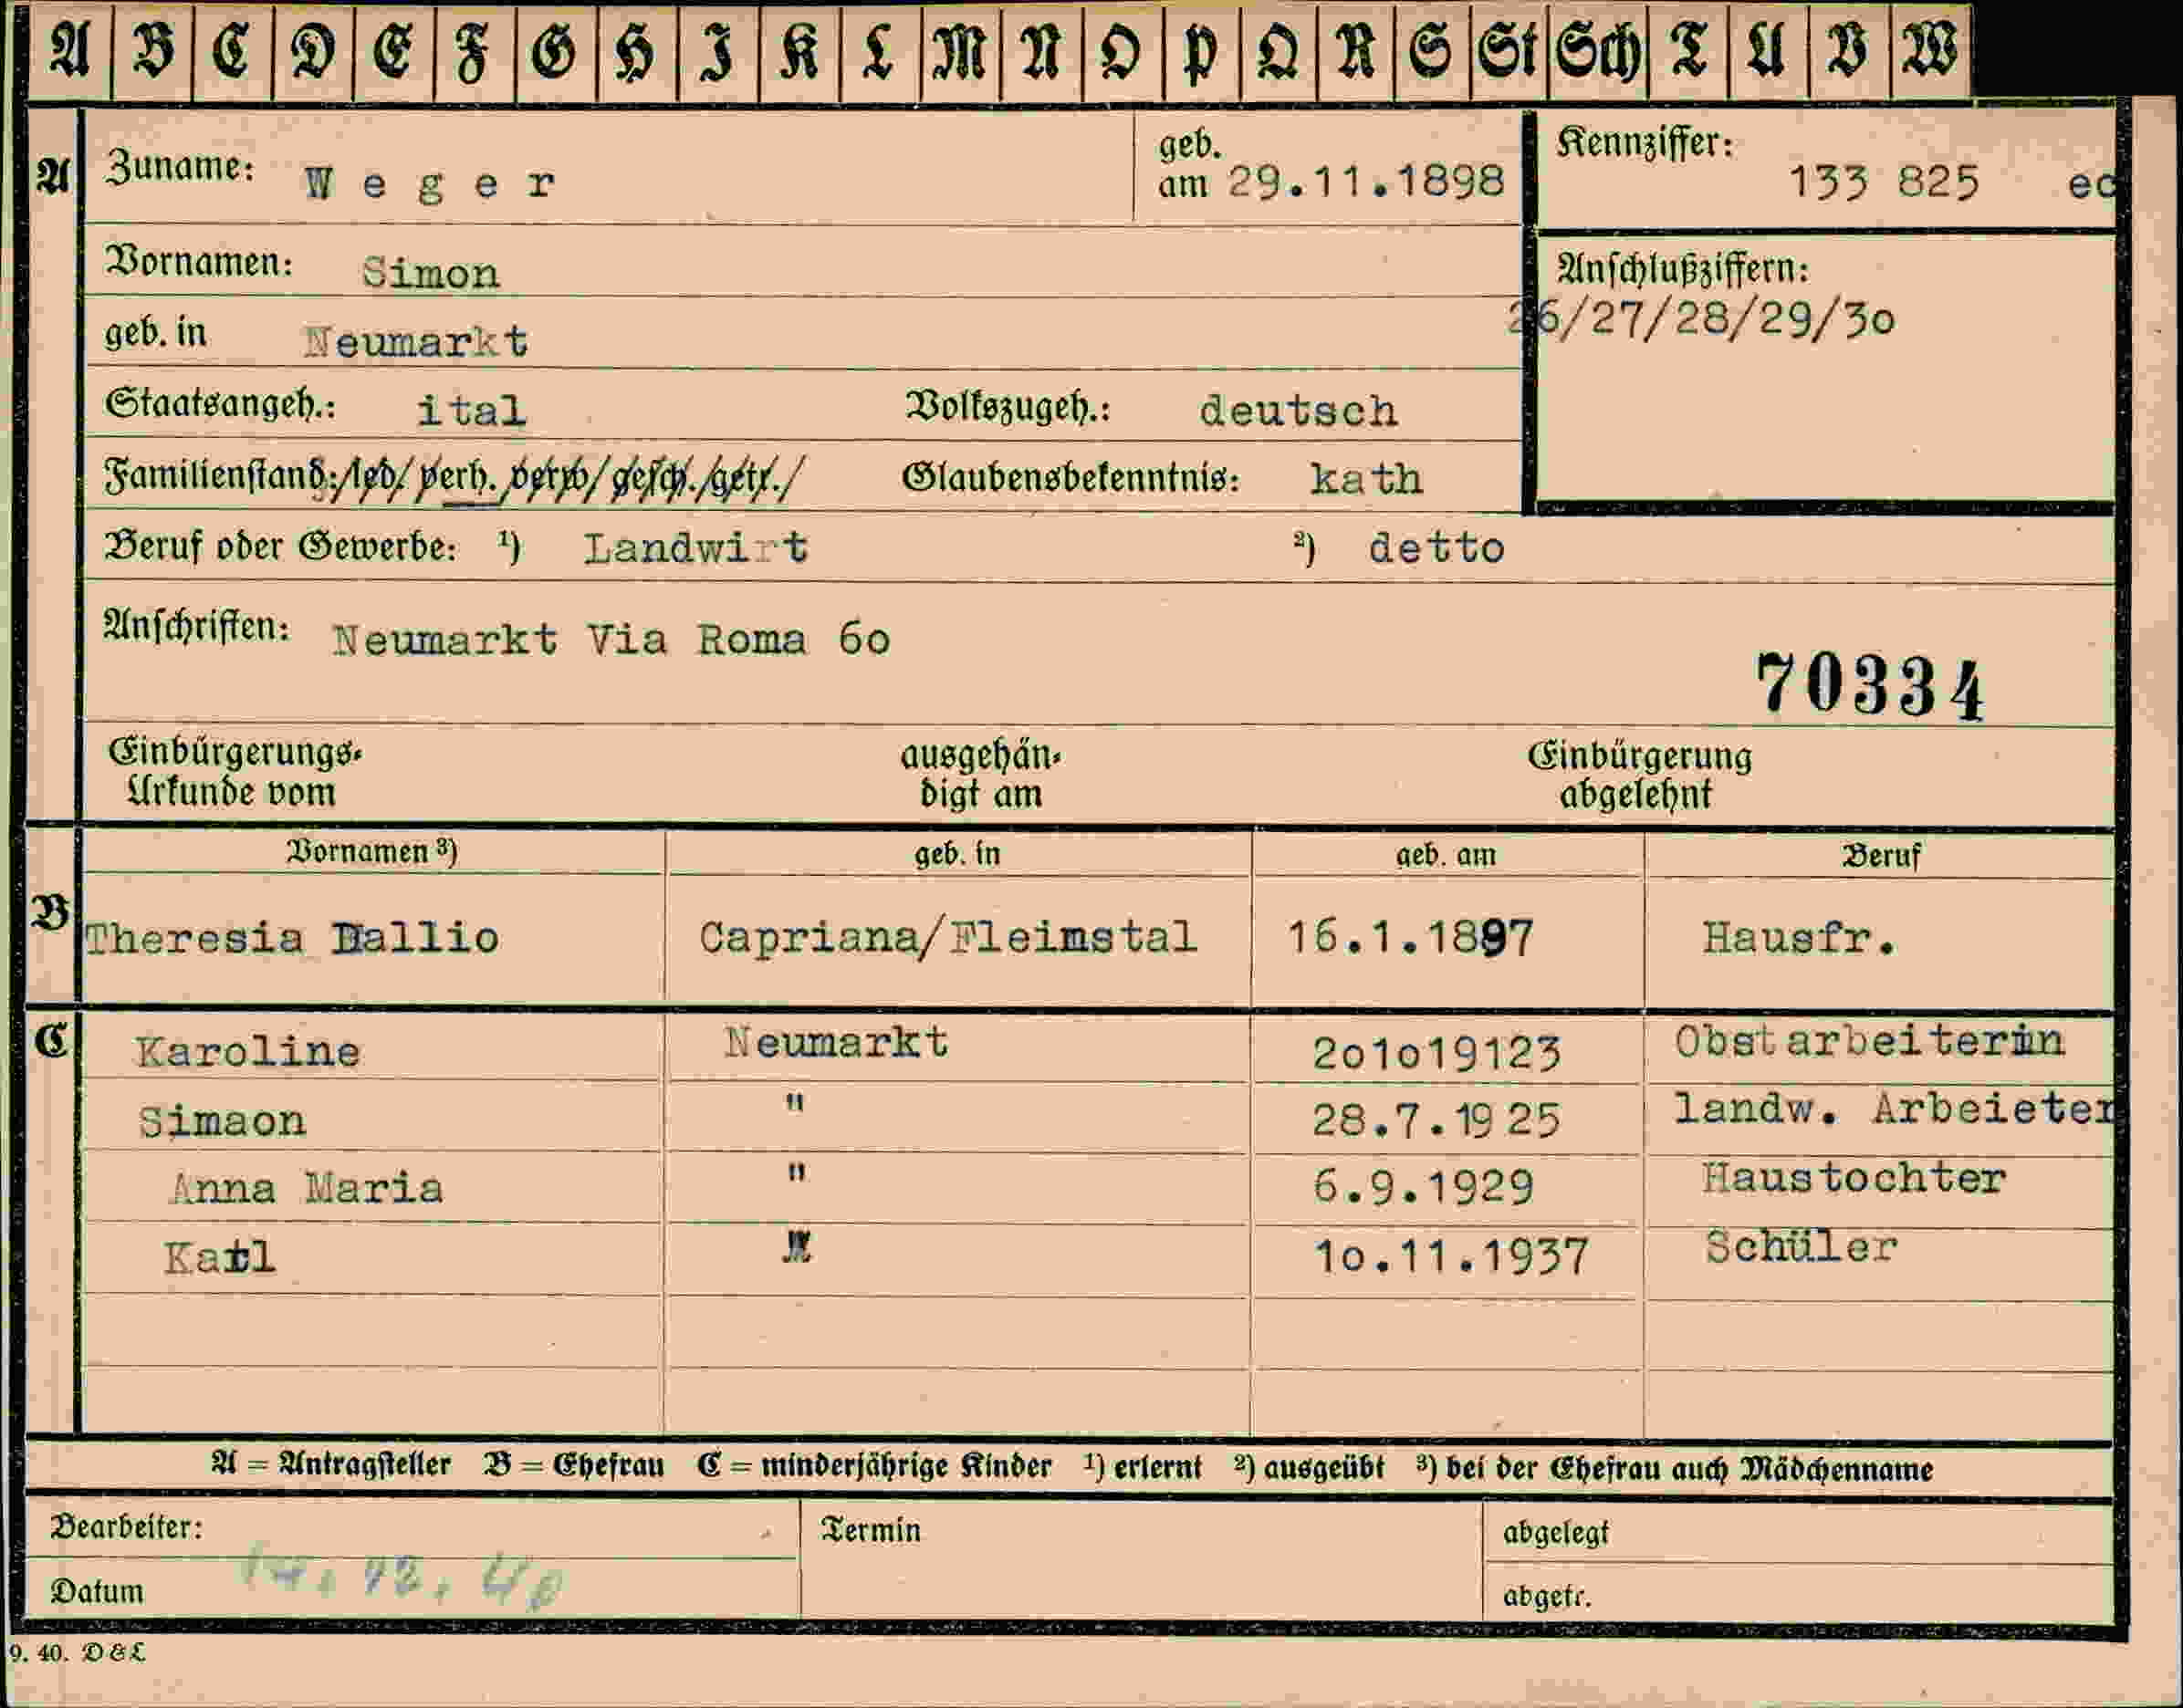 A B C D E F G H I K L M N O P Q R S St Sch T U V W
A Zuname: Weger geb. am 29.11.1898 Kennziffer: 133 825 ec
Vornamen: Simon Anschlußziffern:
geb. in Neumarkt 26/27/28/29/3o
Staatsangeh.: ital Volkszugeh.: deutsch
Familienstand:/led/ verh. verw/ gesch./getr./ Glaubensbekenntnis: kath
Beruf oder Gewerbe: ¹) Landwirt ²) detto
Anschriften: Neumarkt Via Roma 6o
70334
Einbürgerungs- ausgehän- Einbürgerung
Urkunde vom digt am abgelehnt
Vornamen ³) geb. in geb. am Beruf
B Theresia Dallio Capriana/Fleimstal 16.1.1897 Hausfr.
C Karoline Neumarkt 2o1o19123 Obstarbeiterin
Simaon " 28.7.1925 landw. Arbeieter
Anna Maria " 6.9.1929 Haustochter
Karl " 1o.11.1937 Schüler
A = Antragsteller B = Ehefrau C = minderjährige Kinder ¹) erlernt ²) ausgeübt ³) bei der Ehefrau auch Mädchenname
Bearbeiter: Termin abgelegt
Datum 14.12.40 abgetr.
9. 40. D & L